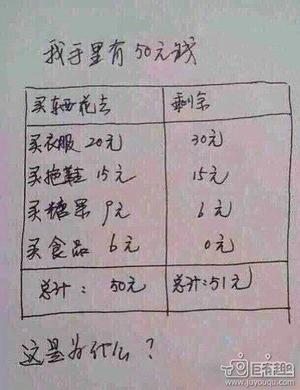 我手里有50元钱
买东西花去 剩余
买衣服 20元 30元
买拖鞋 15元 15元
买糖果 9元 6元
买食品 6元 0元
总计: 50元 总计:51元
这是为什么?
巨有趣
www.juyouqu.com